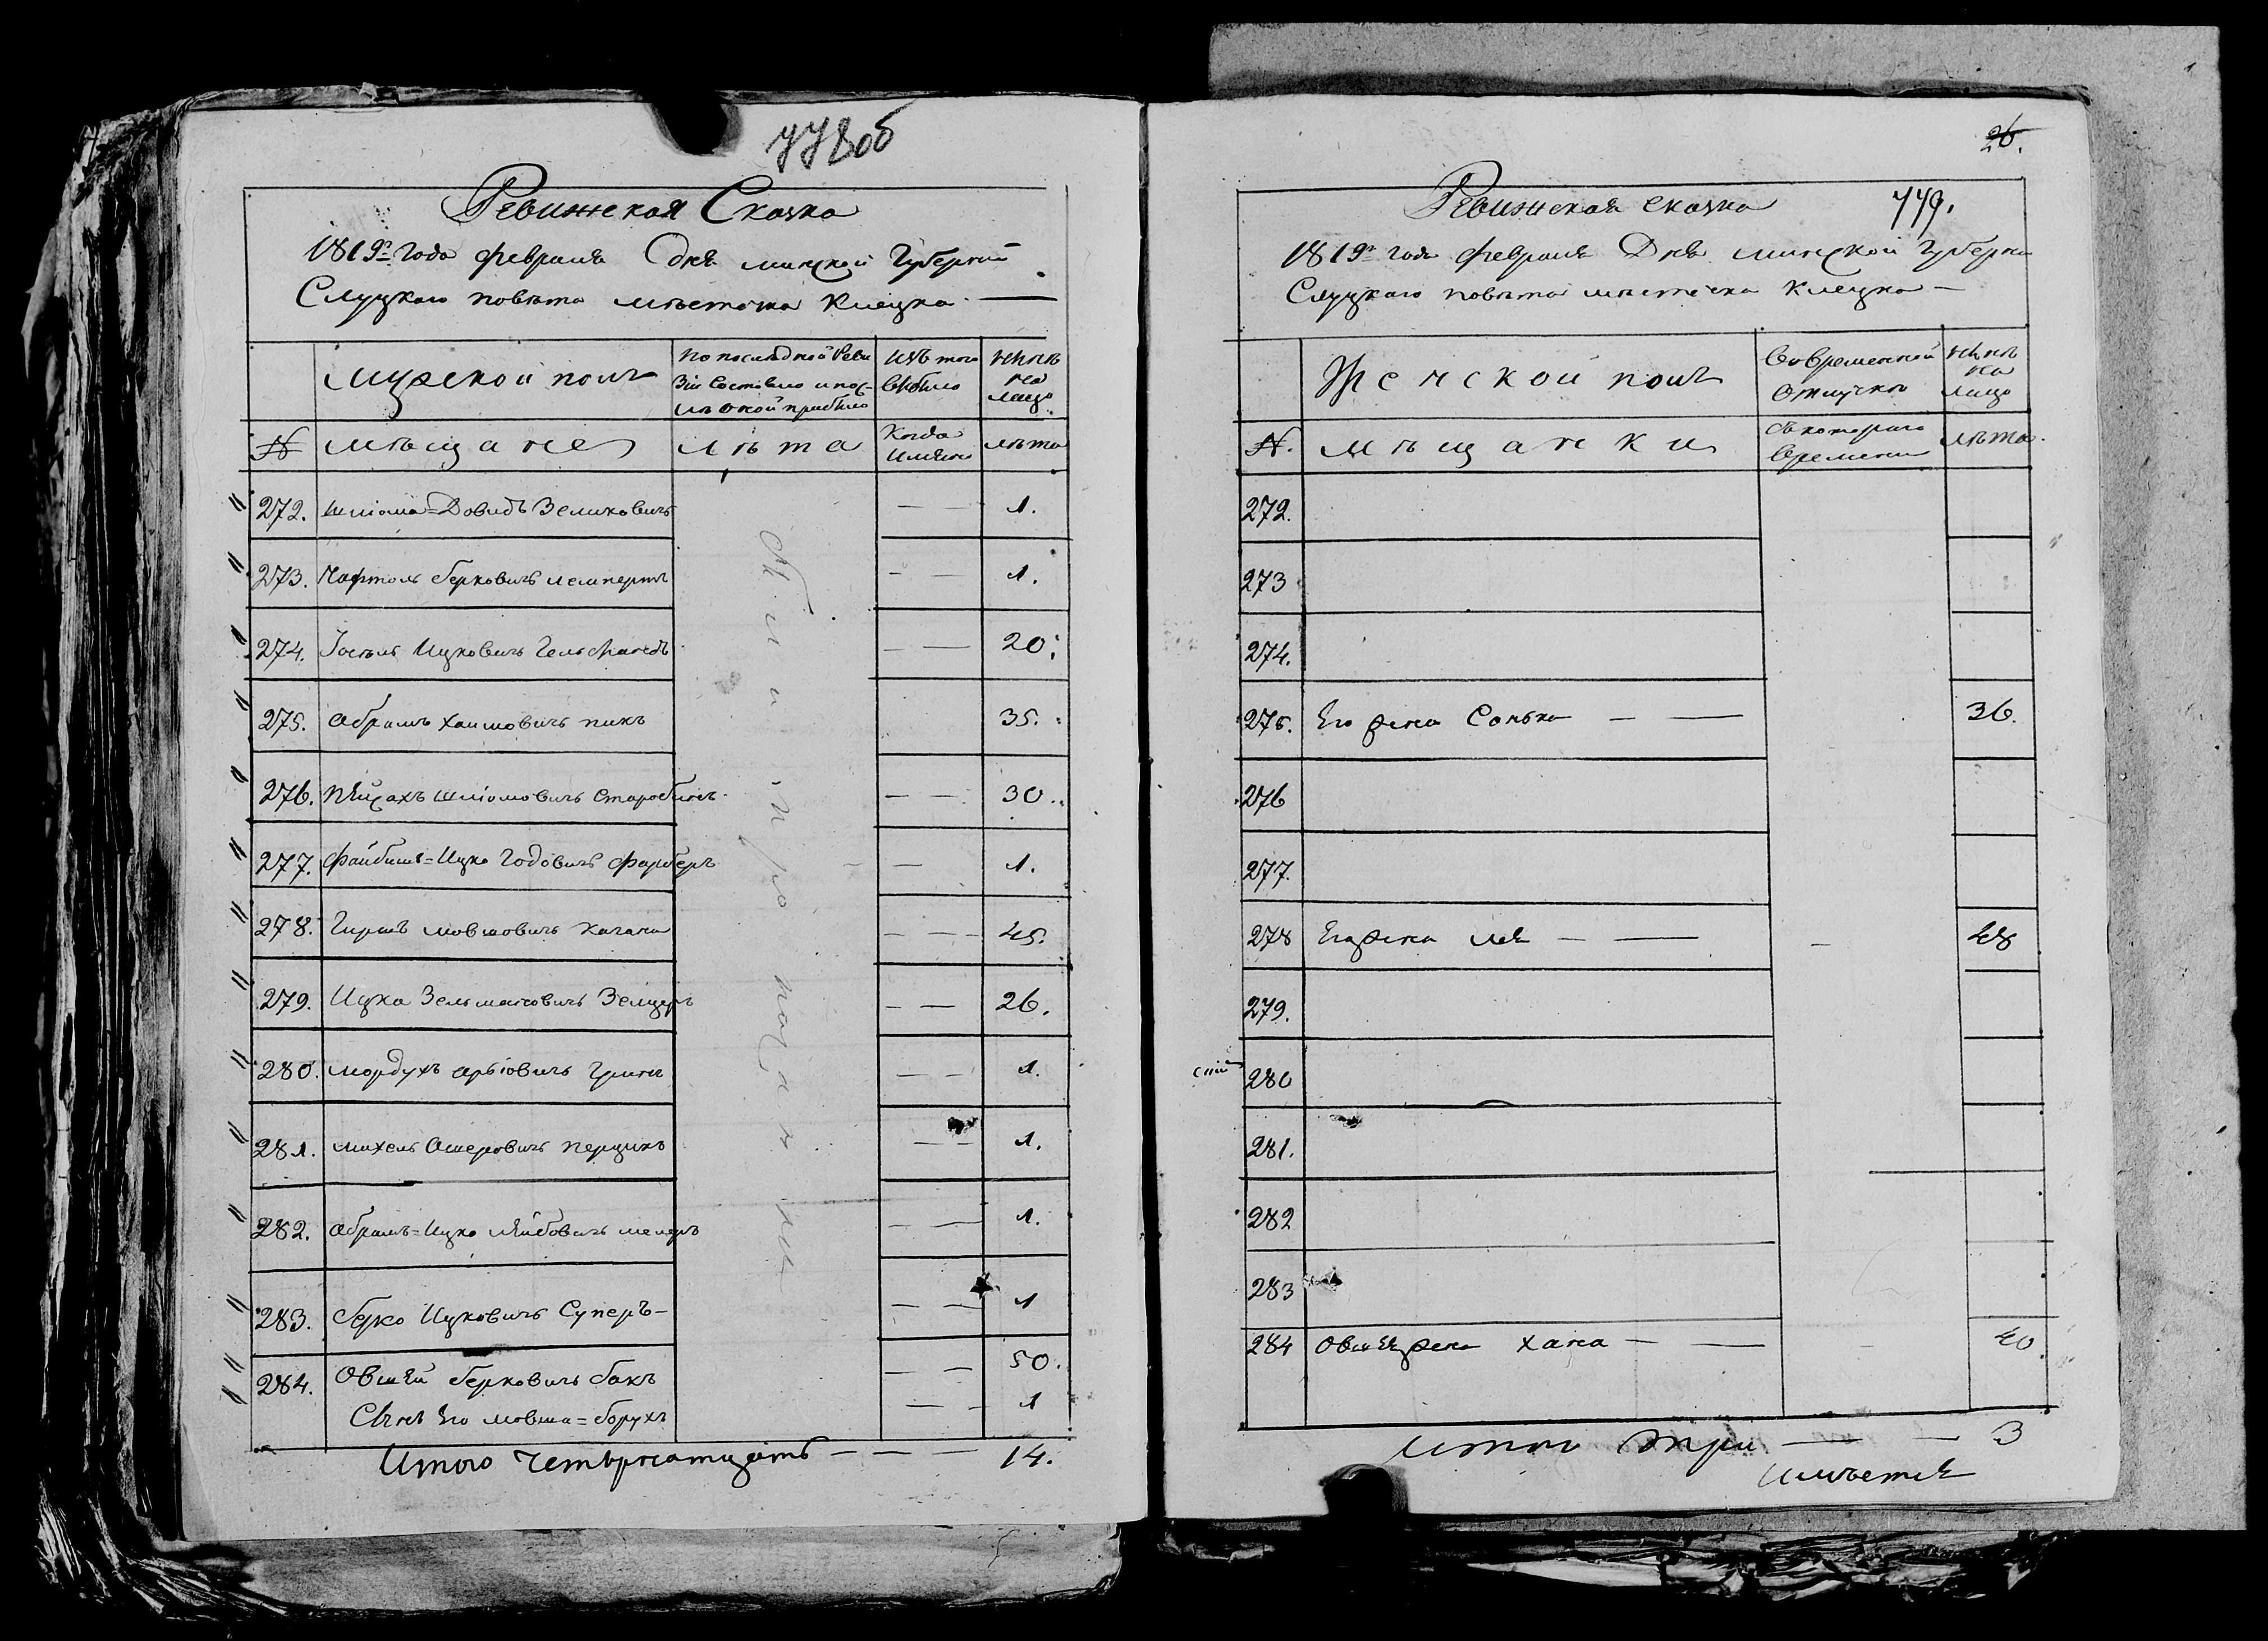 778об
Ревижская Сказка
1819го Года февраля Дня минской Губернии
Слуцкаго повѣта мѣстечка Клецка
мужской полъ
по последной Реви
зіи Состояло и пос
лѣ оной прибыло
изъ того
выбыло
нынѣ
на
лицо
№ мѣщане лѣта Когда имянно лѣта
272. шліома=Довидъ Зеликовичъ — — 1.
273. Нафтоль берковичъ лемпертъ — — 1.
274. Іосель Ицковичъ Гельфандъ — — 20.
275. Абрамъ Хаимовичъ пикъ 35.
276. пейсахъ шліомовичъ Старобинъ — — 30.
277. Файбишъ=Ицко Годовичъ Фарберъ — 1.
278. Гиршъ мовшовичъ Кагана — — 45.
279. Ицка Зельмановичъ Зелцеръ — — 26.
280. мордухъ арьіовичъ Гринъ — — 1.
281. михель Ошеровичъ перцикъ — — 1.
282. абрамъ=Ицко лейбовичъ мелеръ — — 1.
283. берко Ицковичъ Суперъ — — — 1
284. Овшей берковичъ бакъ — — 50.
Сынъ Его мовша=борухъ — — 1
Итого четырнатцать — — — 14.
26.
779.
Ревижская сказка
1819го года февраля Дня минской Губерни
Слуцкаго повѣта мѣстечка Клецка —
Женской полъ
Во временной
отлучкѣ
нынѣ
на
лицо
№. мѣщанки
съ котораго
времени
лѣта
272.
273
274.
275. Его жена Сонька — — 36.
276
277.
278 Его жена лея — — 48
279.
280
281.
282
283
284 Овшея жена Хана — — 40
Итого три — — 3